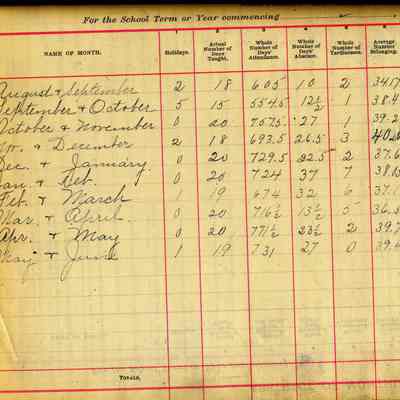 For the School Term or Year commencing
NAME OF MONTH. Holidays. Actual Number of Days Taught. Whole Number of Days' Attendance. Whole Number of Days' Absence. Whole Number of Tardinesses. Average Number Belonging.
August & September 2 18 605 10 2
September & October 5 15 554.5 12½ 1 38.4
October & November 0 20 757.5 27 1 39.2
Nov. & December 2 18 693.5 26.5 3
Dec. & January 0 20 729.5 22.5 2 37.6
Jan. & Feb. 0 20 724 37 7
Feb. & March 1 19 674 32 6
Mar. & April 0 20 716½ 13½ 5
Apr. & May 0 20 771½ 23½ 2 39.7
May & June 1 19 731 27 0
TOTALS,